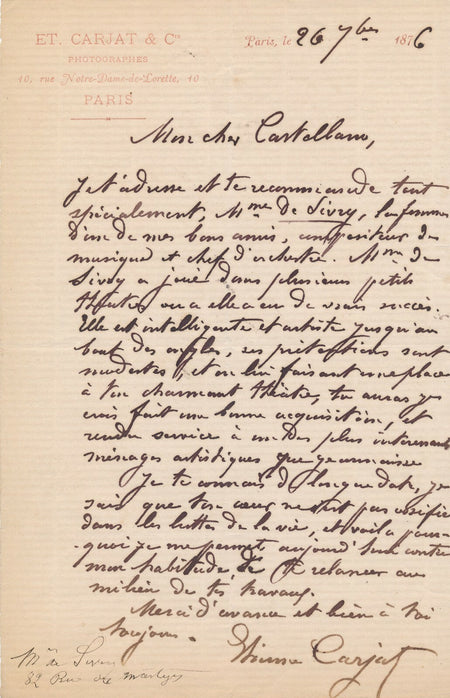 ET. CARJAT & Cie
PHOTOGRAPHES
10, rue Notre-Dame-de-Lorette, 10
PARIS
Paris, le 26 7bre 1876
Mon cher Castellano,
Je t'adresse et te recommande tout
spécialement, Mme de Sivry, la femme
d'un de mes bons amis, compositeur de
musique et chef d'orchestre. Mme de
Sivry a joué dans plusieurs petits
théâtres où elle a eu de vrais succès.
Elle est intelligente et artiste jusqu'au
bout des ongles, ses prétentions sont
modestes, et en lui faisant une place
à ton charmant théâtre, tu auras je
crois fait une bonne acquisition, et
rendu service à un des plus intéressants
ménages artistiques que je connaisse
Je te connais de longue date, je
sais que ton cœur ne s'est pas ossifié
dans les luttes de la vie, et voilà pour-
quoi je me permet aujourd'hui contre
mon habitude de te relancer au
milieu de tes travaux.
Merci d'avance et bien à toi
toujours.
Etienne Carjat
Mme de Sivry
82 Rue des Martyrs